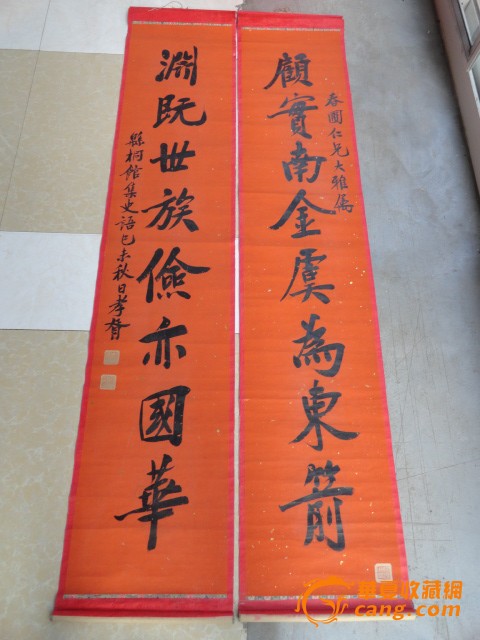 顧實南金虞為東箭
春圃仁兄大雅属
淵既世族儉亦國華
縣桐館集史語己未秋日孝胥
華夏收藏網
cang.com